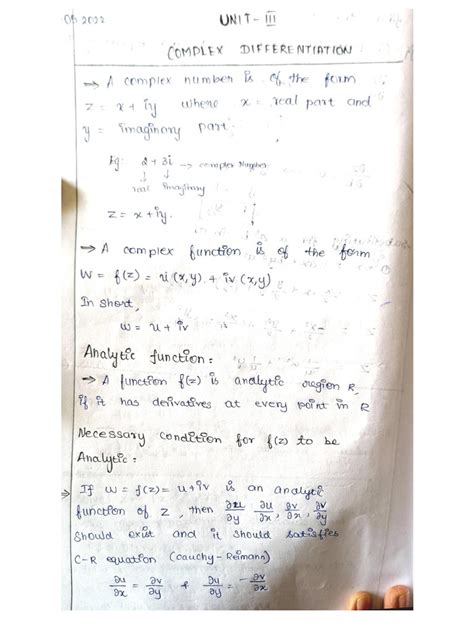 2022 UNIT - III
COMPLEX DIFFERENTIATION
→ A complex number is of the form
z = x + iy where x = real part and
y = imaginary part.
Eg: 2 + 3i → complex Number
↓ ↓
real imaginary
z = x + iy.
→ A complex function is of the form
W = f(z) = u(x,y) + iv(x,y)
In short,
w = u + iv
Analytic function:
→ A function f(z) is analytic region R,
if it has derivatives at every point in R
Necessary condition for f(z) to be
Analytic:
⇒ If w = f(z) = u + iv is an analytic
function of z, then ∂u/∂y, ∂u/∂x, ∂v/∂x, ∂v/∂y
should exist and it should satisfies
C-R equation (Cauchy-Reimann)
∂u/∂x = ∂v/∂y & ∂u/∂y = -∂v/∂x